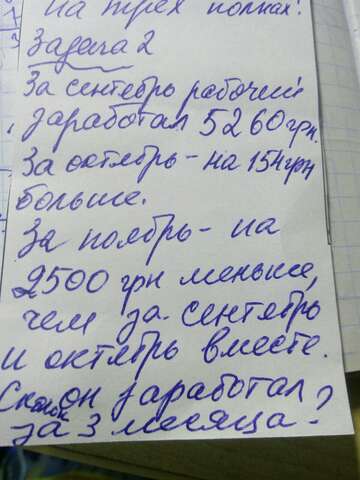 на трёх полках?
Задача 2
За сентябрь рабочий
заработал 5260 грн.
За октябрь - на 154 грн
больше.
За ноябрь - на
2500 грн меньше,
чем за сентябрь
и октябрь вместе.
Сколько он заработал
за 3 месяца?